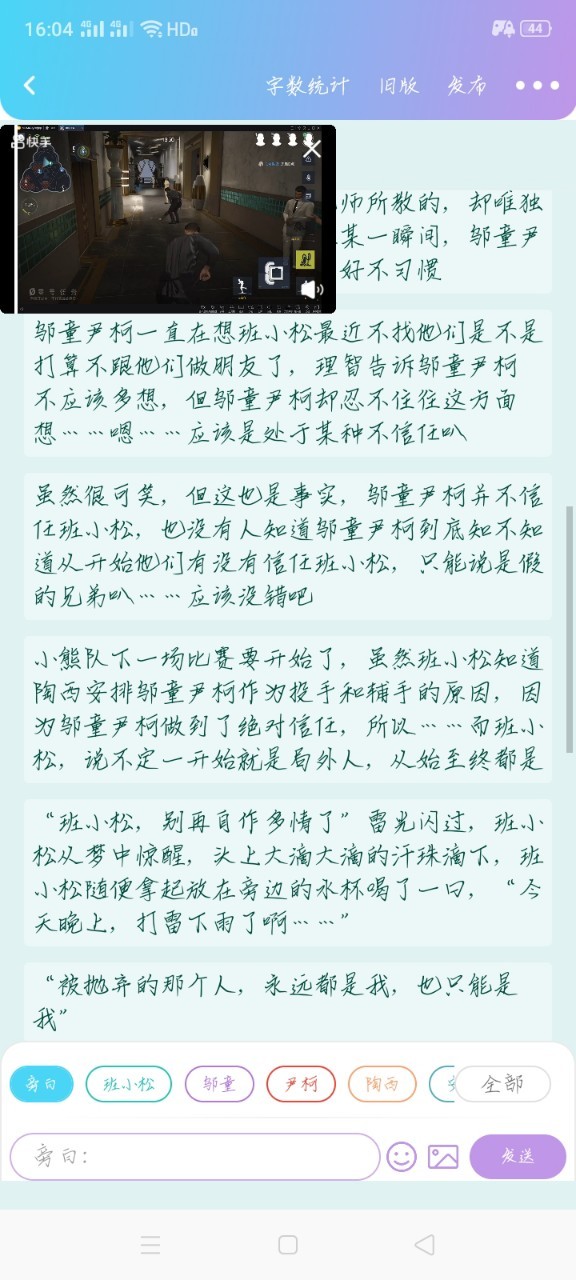 16:04
4G
4G
HD
44
字数统计 旧版 发布
快手
师所教的，却唯独
某一瞬间，邬童尹
好不习惯
邬童尹柯一直在想班小松最近不找他们是不是
打算不跟他们做朋友了，理智告诉邬童尹柯
不应该多想，但邬童尹柯却忍不住往这方面
想……嗯……应该是处于某种不信任叭
虽然很可笑，但这也是事实，邬童尹柯并不信
任班小松，也没有人知道邬童尹柯到底知不知
道从开始他们有没有信任班小松，只能说是假
的兄弟叭……应该没错吧
小熊队下一场比赛要开始了，虽然班小松知道
陶西安排邬童尹柯作为投手和辅手的原因，因
为邬童尹柯做到了绝对信任，所以……而班小
松，说不定一开始就是局外人，从始至终都是
“班小松，别再自作多情了”雷光闪过，班小
松从梦中惊醒，头上大滴大滴的汗珠滴下，班
小松随便拿起放在旁边的水杯喝了一口，“今
天晚上，打雷下雨了啊……”
“被抛弃的那个人，永远都是我，也只能是
我”
旁白 班小松 邬童 尹柯 陶西 全部
旁白：
发送